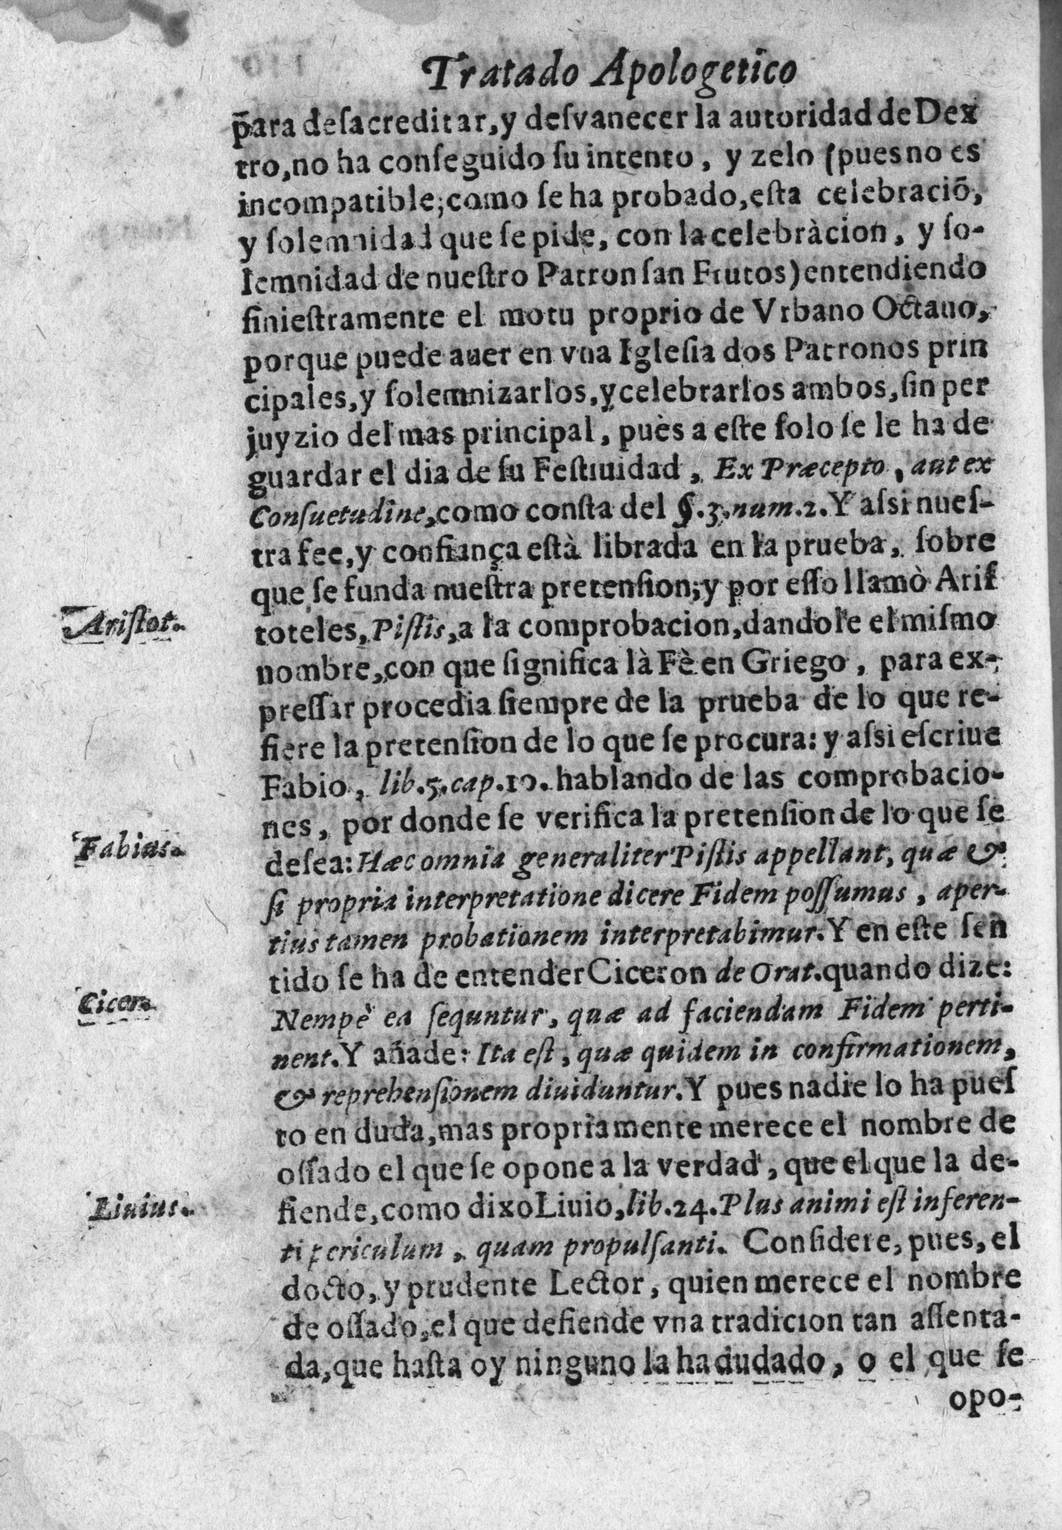 Tratado Apologetico
p̃ara desacreditar, y desvanecer la autoridad de Dex
tro, no ha conseguido su intento, y zelo (pues no es
incompatible; como se ha probado, esta celebraciõ,
y solemnidad que se pide, con la celebràcion, y so-
lemnidad de nuestro Patron san Frutos) entendiendo
siniestramente el motu proprio de Vrbano Octauo,
porque puede auer en vna Iglesia dos Patronos prin
cipales, y solemnizarlos, y celebrarlos ambos, sin per
juyzio del mas principal, pues a este solo se le ha de
guardar el dia de su Festiuidad, Ex Præcepto, aut ex
Consuetudine, como consta del §.3. num.2. Y assi nues-
tra fee, y confiança està librada en la prueba, sobre
que se funda nuestra pretension; y por esso llamò Aris
Aristot.
toteles, Pistis, a la comprobacion, dandole el mismo
nombre, con que significa là Fè en Griego, para ex-
pressar procedia siempre de la prueba de lo que re-
fiere la pretension de lo que se procura: y assi escriue
Fabio, lib.5. cap.10. hablando de las comprobacio-
nes, por donde se verifica la pretension de lo que se
Fabius.
desea: Hæc omnia generaliter Pistis appellant, quæ &
si propria interpretatione dicere Fidem possumus, aper-
tius tamen probationem interpretabimur. Y en este sen
tido se ha de entender Ciceron de Orat. quando dize:
Cicer.
Nempè ea sequntur, quæ ad faciendam Fidem perti-
nent. Y añade: Ita est, quæ quidem in confirmationem,
& reprehensionem diuiduntur. Y pues nadie lo ha pues
to en duda, mas propriamente merece el nombre de
ossado el que se opone a la verdad, que el que la de-
Liuius.
fiende, como dixo Liuio, lib.24. Plus animi est inferen-
ti periculum, quam propulsanti. Considere, pues, el
docto, y prudente Lector, quien merece el nombre
de ossado, el que defiende vna tradicion tan assenta-
da, que hasta oy ninguno la ha dudado, o el que se
opo-